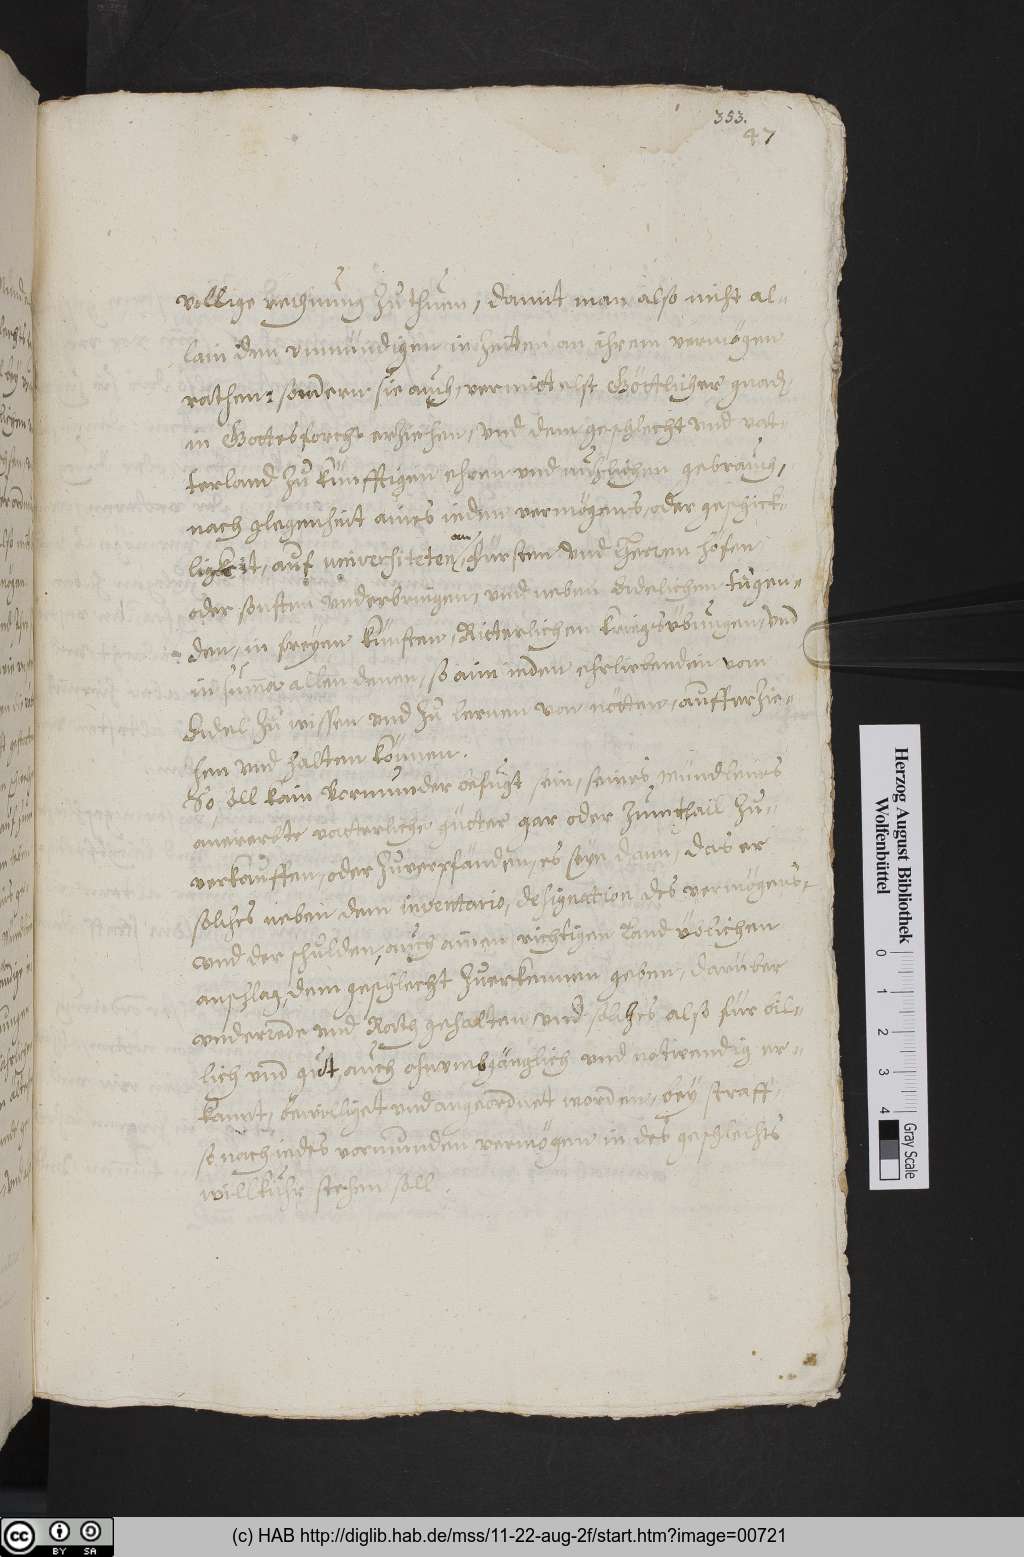 353.
47
vollige rechnung zu thuen, damit man also nicht al-
lain den vnmündigen in Zeitten an ihrem vermögen
rathen: sondern sie auch, vermittelst Göttlicher gnad,
in Gottesforcht erziehen, vnd dem geschlecht vnd vat-
terland zu künfftigen ehren vnd nützlichen gebrauch,
nach glegenheit aines ieden vermögens, oder geschick-
ligkeit, auf vniversiteten, an Fürsten vnd Herren höfen
oder sonsten vnderbringen, vnd neben Adelichen tugen-
den, in freyen künsten, Ritterlichen kriegsübungen, vnd
in summa allen denen, so aim ieden ehrliebenden vom
Adel zu wissen vnd zu lernen von nötten, aufferzie-
hen vnd halten können.
So soll kain Vormunder befugt sein, seines mündleins
anererbte vatterliche güeter gar oder zum thail zu-
verkauffen, oder zuverpfanden, es seye dann, das er
solches neben dem inventario, designation des vermögens,
vnd der schulden, auch ainen richtigen Land üblichen
anschlag, dem geschlecht zuerkennen geben, darüber
vnderrede vnd Rath gehalten vnd solches also für bil-
lich vnd gut, auch ohnumbgänglich vnd notwendig er-
kannt, bewilliget vnd angeordnet worden, bey straff,
so nach iedes vormunden vermögen in des geschlechts
willkuhr stehen soll.
Herzog August Bibliothek
Wolfenbüttel
0 1 2 3 4
Gray Scale
cc BY SA
(c) HAB http://diglib.hab.de/mss/11-22-aug-2f/start.htm?image=00721